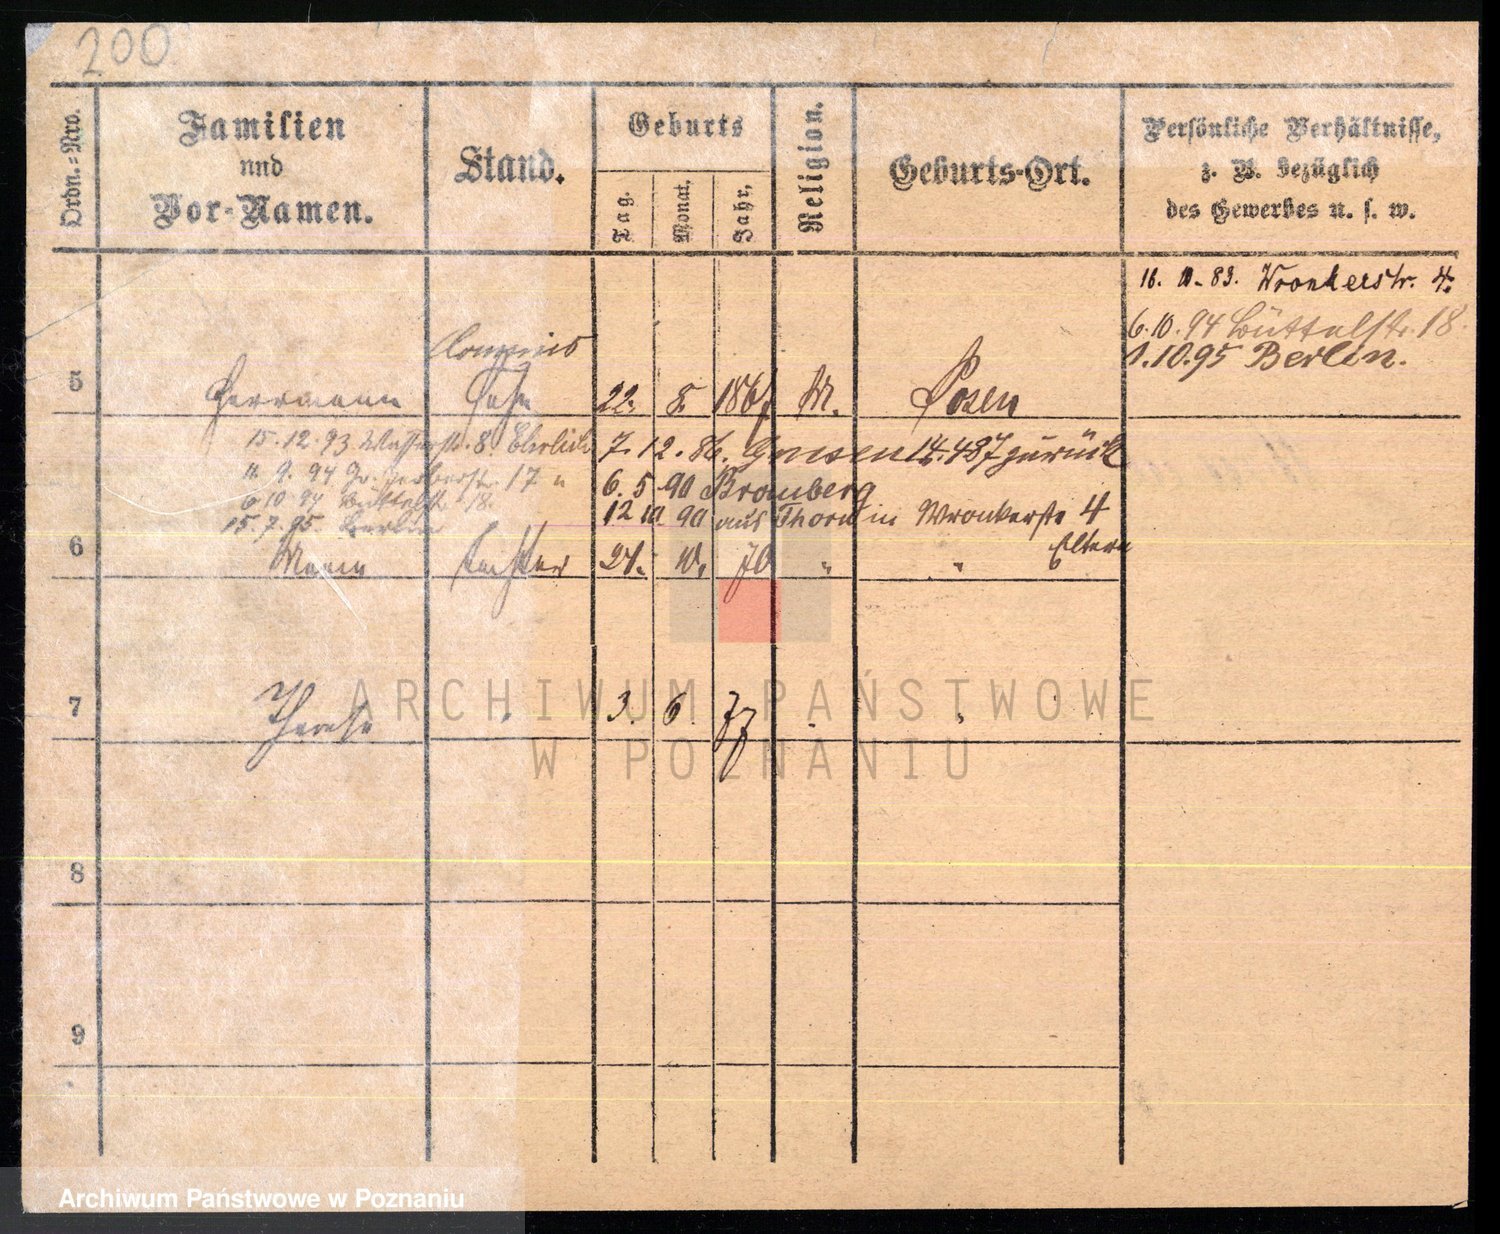 200
Ordn.-Nro.
Familien
und
Vor-Namen.
Stand.
Geburts
Tag.
Monat.
Jahr,
Religion.
Geburts-Ort.
Persönliche Verhältnisse,
z. B. bezüglich
des Gewerbes u. s. w.
16. 10. 83. Wronkerstr. 4.
6.10.94 Büttelstr. 18.
1.10.95 Berlin.
Commis
5 Herrmann Sohn 22. 8. 1867 M. Posen
15.12.93 Wasserstr. 8. Ehrlich
7.12.86. Gnesen 14.4 87 zurück
11. 9. 94 Gr. Gerberstr. 17 "
6. 5 90 Bromberg
6 10 94 Büttelstr. 18.
12 10 90 aus Thorn in Wronkerstr 4
15.7.95 Berlin
Eltern
6 Tochter 24. 10. 70 " "
7 Therese " 3. 6. 77 " "
8
9
ARCHIWUM PAŃSTWOWE
W POZNANIU
Archiwum Państwowe w Poznaniu